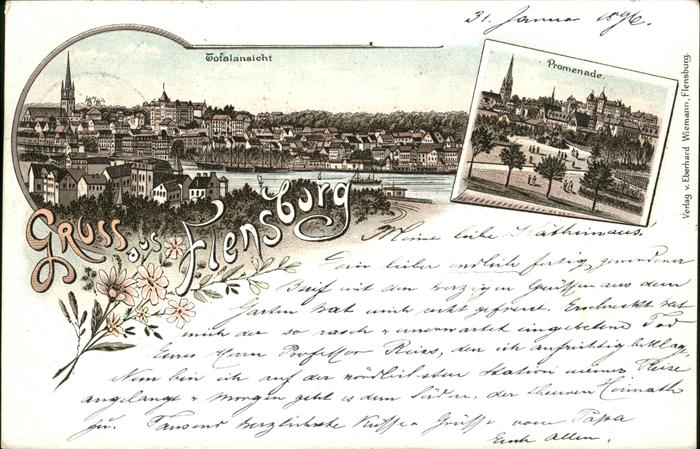 31. Januar 1896.
Totalansicht
Promenade.
Verlag v Eberhard Wiemann, Flensburg.
Gruss aus Flensburg
Meine liebe
Dein lieber endlich fertig gewordener
Brief mit den herzigen Grüssen aus dem
Garten hat mich recht gefreut. Erschreckt hat
mich der so rasch u unerwartet eingetretene Tod
Eures Herrn Professor Reiss, den ich aufrichtig beklage.
Nun bin ich auf der nördlichsten Station meiner Reise
angelangt u morgen geht es dem Süden, der theuren Heimath
zu. Tausend herzlichste Küsse u Grüsse vom Papa
Euch Allen.